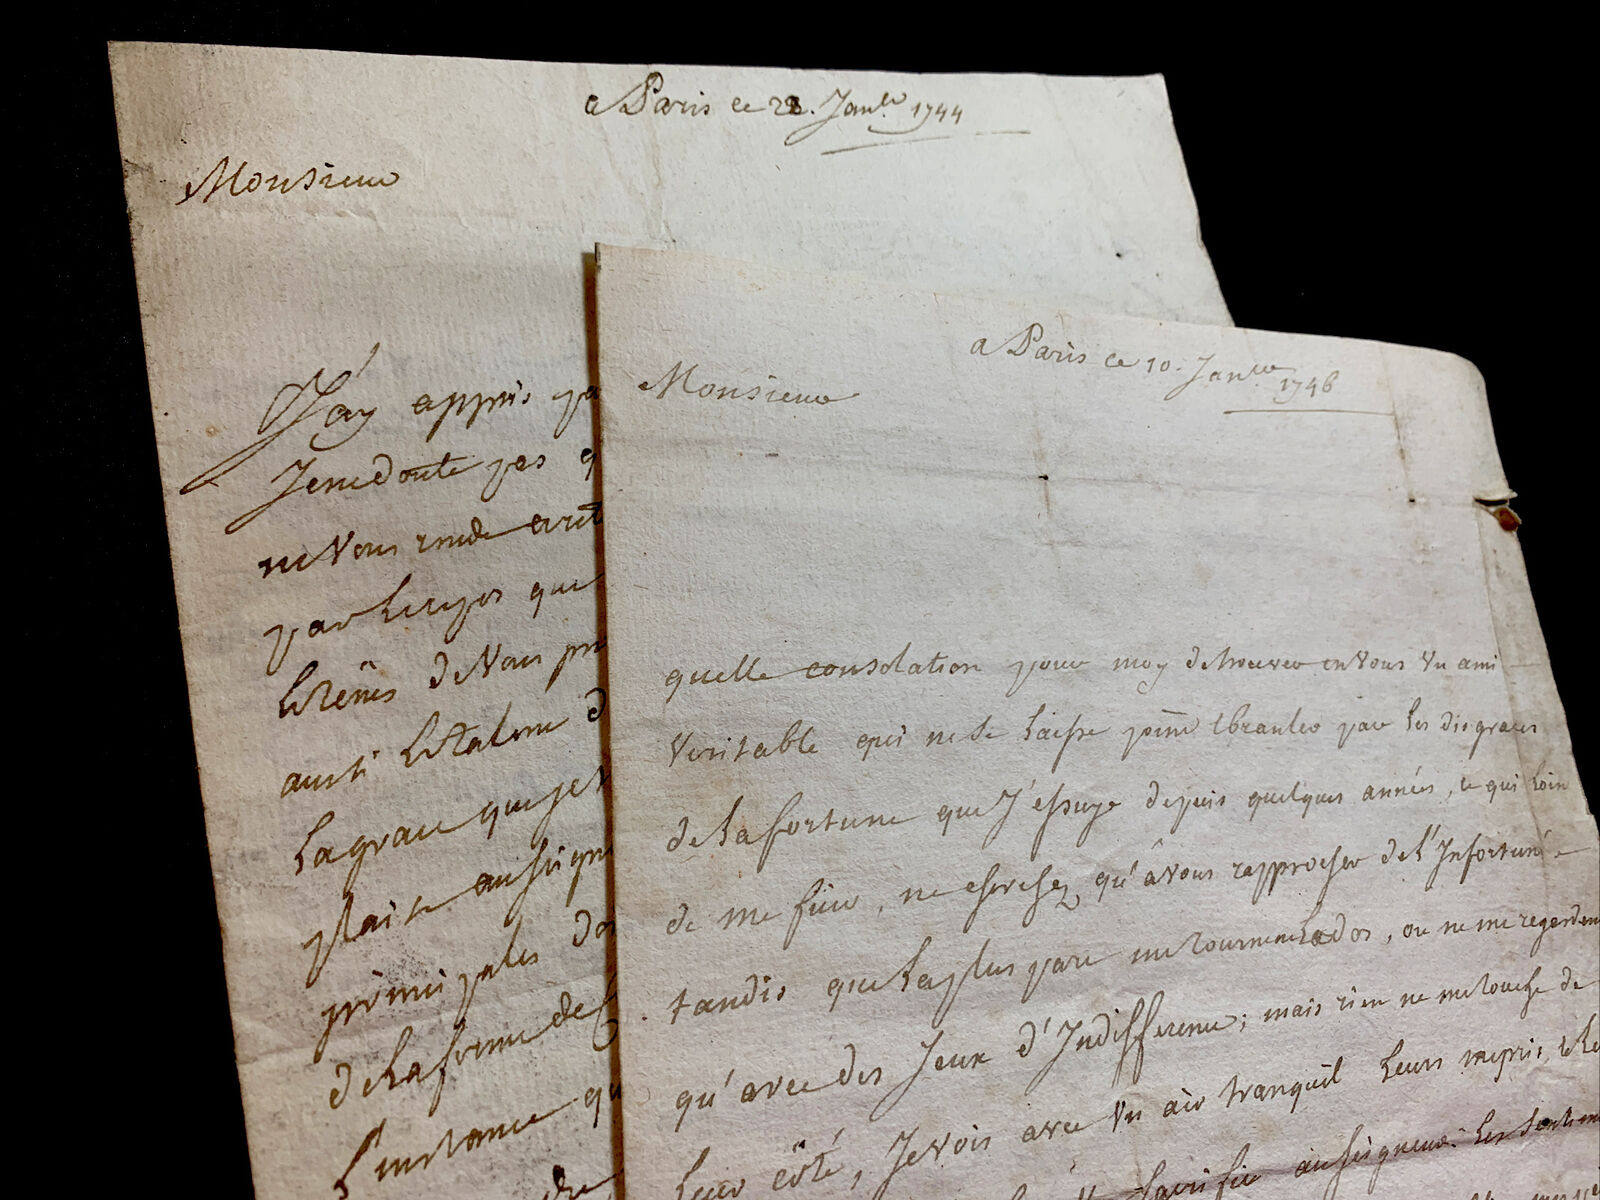 a Paris ce 28. Janv.er 1744
Monsieur
J'ay appris
Je ne doute pas
ne vous rende
par que
de vous
aussi
La grace que je
plaise au seigne
principales
de La forme de
L'instance qu
a Paris ce 10. Janvier
1746
Monsieur
quelle consolation pour moy de trouver en vous un ami
veritable qui ne se Laisse point Ebranler par Les disgraces
de La fortune que J'essuye depuis quelques années, ce qui Loin
de me fuir, ne cherchez qu'à vous rapprocher de L'Infortuné
tandis que La plus part me tournent Le dos, ou ne me regardent
qu'avec des Jeux d'Indifference; mais rien ne me touche de
Leur côté, Je vois avec un air tranquil Leurs mepris,
sacrifie au seigneur. Les sentimen